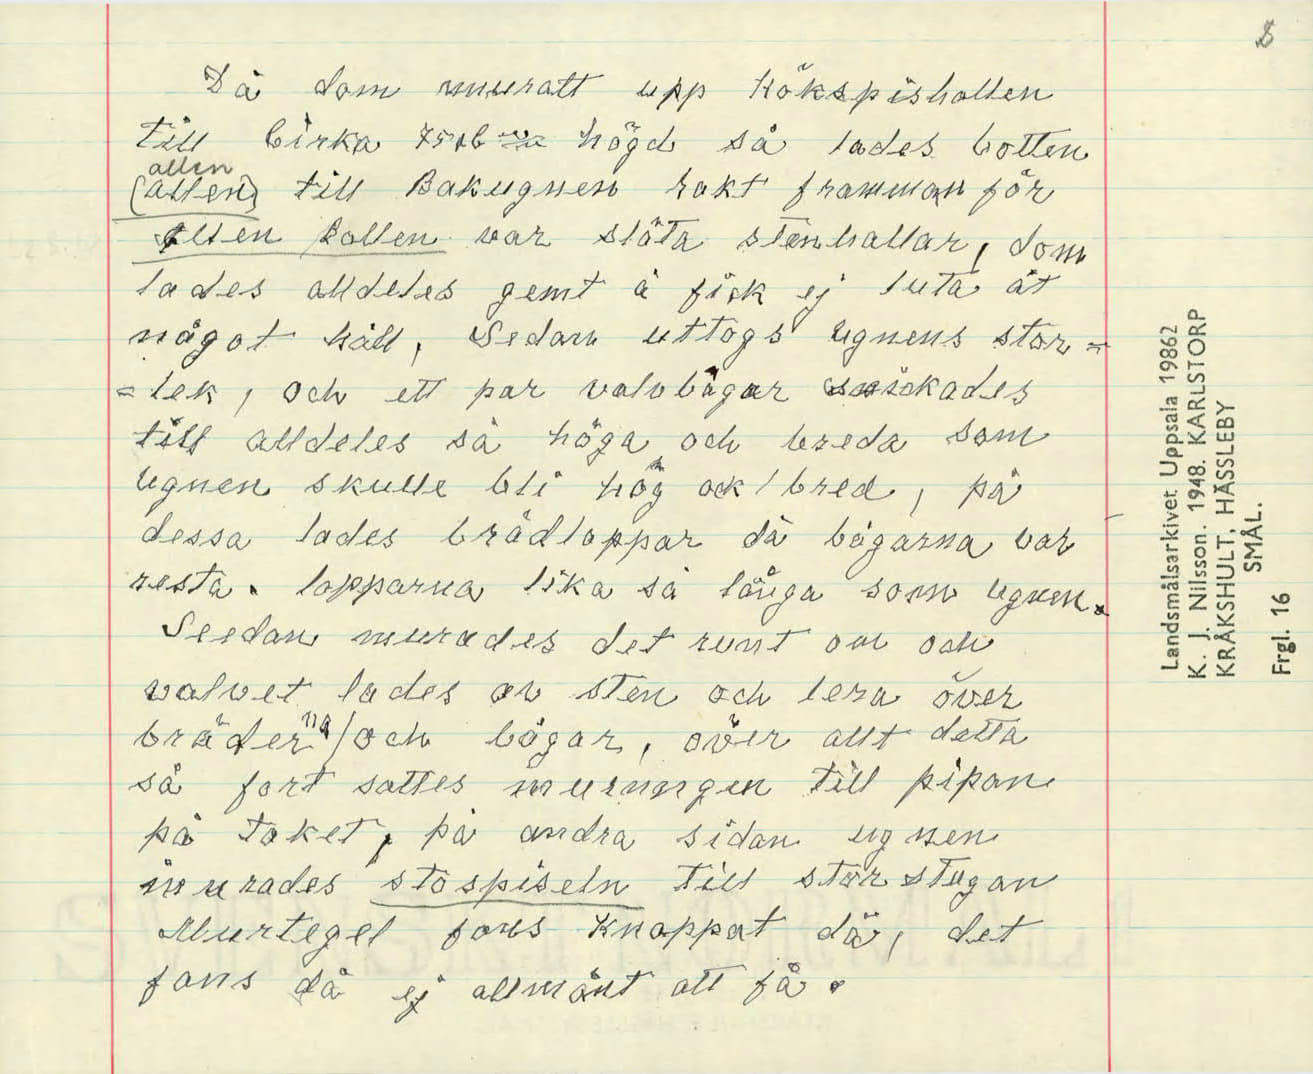 Då dom muratt upp Kökspishallen
till Cirka 75 höjd så lades botten
ällen
(ällen) till Bakugnen rakt framman för
ällen hällen var släta stenhallar, dom
lades alldeles gemt å fick ej luta åt
något håll, Sedan uttogs Ugnens stor=
=lek, och ett par valvbågar snickades
till alldeles så höga och breda som
Ugnen skulle bli hög ock/bred, på
dessa lades brädlappar då bågarna var
resta. lapparna lika så långa som Ugnen.
Seedan murades det runt om och
valvet lades av sten och lera över
bräderna/och bågar, över allt detta
så fort sattes murningen till pipan
på taket, på andra sidan ugnen
murades stospiseln till stor stugan
Murtegel fans knappat då, det
fans då ej allmänt att få.
Landsmålsarkivet, Uppsala 19862
K. J. Nilsson. 1948. KARLSTORP
KRÅKSHULT, HÄSSLEBY
SMÅL.
Frgl. 16